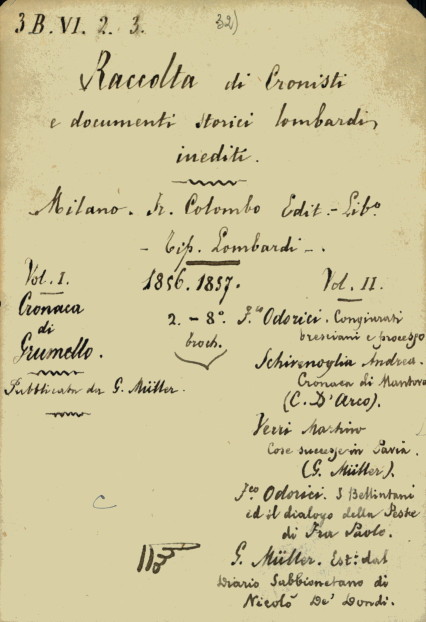 3.B.VI. 2. 3.
32)
Raccolta di Cronisti
e documenti storici lombardi
inediti.
Milano. Fr. Colombo Edit.-Libº
- Tip. Lombardi -.
1856. 1857.
2. - 8º.
broch.
Vol. I.
Cronaca
di
Grumello.
Pubblicata da G. Müller.
Vol. II.
F.co Odorici. Congiurati
bresciani e processo
Schivenoglia Andrea.
Cronaca di Mantova
(C. D'Arco).
Verri Martino
Cose successe in Pavia.
(G. Müller).
F.co Odorici. I Bellintani
ed il dialogo della Peste
di Fra Paolo.
G. Müller. Est: dal
Diario Sabbionetano di
Nicolò De' Dondi.
C